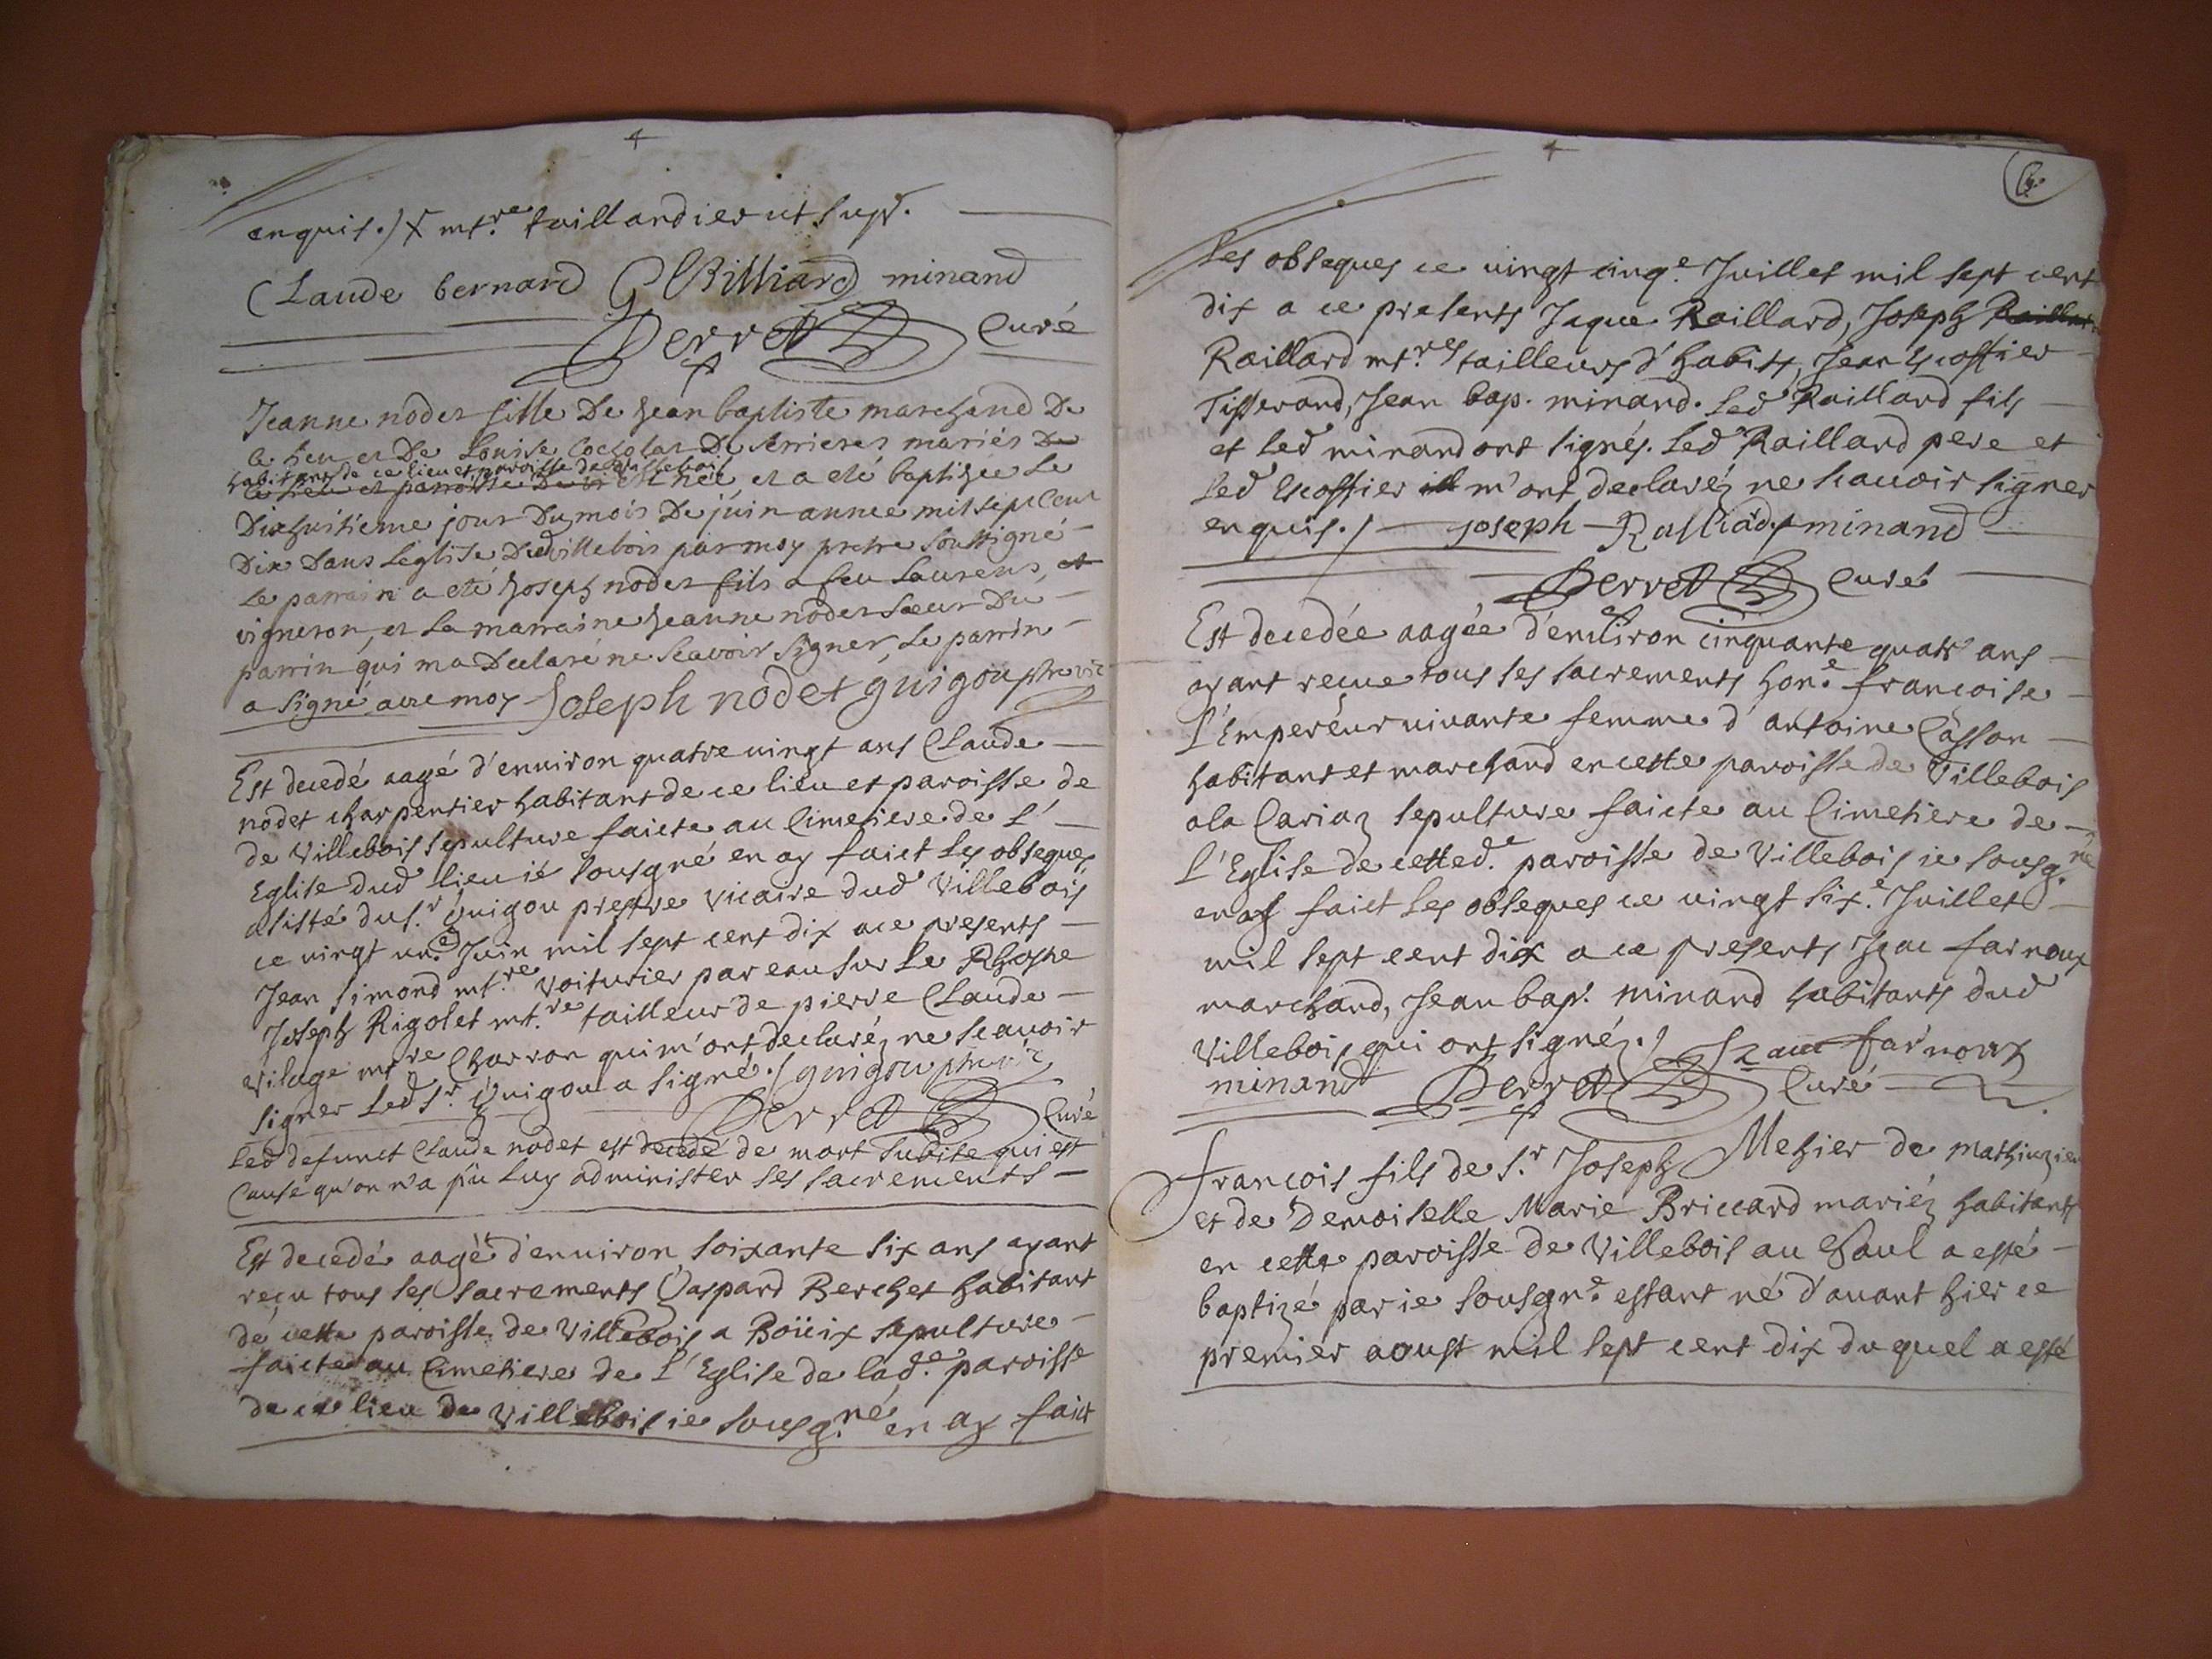 enquis./ X mt.re taillandier ut sup.
Claude bernard G Billiard minand
Perret Curé
Jeanne nodet fille De jean baptiste marchand De
ce lieu et De Louise Cocholat De Serrieres mariés De
habitants de ce lieu et paroisse de villebois
ce lieu et parroisse De est née et a eté baptizée Le
Dixhuitieme jour Du mois De juin annee mil sept Cent
Dix Dans Leglise Dud villebois par moy pretre Soussigné
Le parrain a eté joseph nodet fils a feu Laurens, et
vigneron, et La marraine jeanne nodet Sœur Du
parrin qui ma Declaré ne Scavoir Signer, Le parrin
a Signé avec moy Joseph nodet guigou ptre vic
Est decedé aagé d'enuiron quatre uingt ans Claude
nodet charpentier habitant de ce lieu et paroisse de
de Villebois sepulture faicte au Cimetiere de L'
Eglise dud lieu ie sousgné en ay faict les obseques
asisté du s.r Guigou prestre vicaire dud Villebois
ce uingt un.e Juin mil sept cent dix a ce presents
Jean Simond mt.re voiturier par eau sur le Rhosne
Joseph Rigolet mt.re tailleur de pierre Claude
vilage mt.re Charron qui m'ont declaréz ne scauoir
signer led s.r Guigou a signé./ guigou ptre vic
Perret Curé
Led defunct Claude nodet est decedé de mort subite qui est
Cause qu'on n'a pû luy administer les sacrements
Est decedé aagé d'enuiron soixante six ans ayant
reçu tous ses sacrements Gaspard Berchet habitant
de cette paroisse de Villebois a Boüix sepulture
faicte au Cimetiere de L'Eglise de lad.e paroisse
de ce lieu de Villebois ie sousg.né en ay faict
Les obseques ce uingt cinq.e Juillet mil sept cent
dix a ce presents Jaque Raillard, Joseph Raillar
Raillard mt.res tailleurs d'habits, Jean Escoffier
Tisserand, Jean bap. minand. Led Raillard fils
et led minand ont signés. Led Raillard pere et
led Escoffier m'ont declaréz ne scauoir signer
enquis./ joseph Ralliard minand
Perret Curé
Est decedée aagée d'enuiron cinquante quatr' ans
ayant reçue tous ses sacrements hon.e francoise
L'Empereur uiuante femme d'antoine Casson
habitant et marchand en cette paroisse de Villebois
a la Cariaz sepulture faicte au Cimetiere de
L'Eglise de cetted.e paroisse de Villebois ie sousg.né
en ay faict les obseques ce uingt six.e Juillet
mil sept cent dix a ce presents Izac farnoux
marchand, Jean bap. minand habitants dud
Villebois qui ont signéz./ Izaac farnoux
minand Perret Curé
francois fils de s.r Joseph Mehier de mathiuzieu
et de Demoiselle Marie Briccard mariéz habitants
en cette paroisse de Villebois au Saul a esté
baptizé par ie sousgn.é estant né d'auant hier ce
premier aoust mil sept cent dix du quel a esté